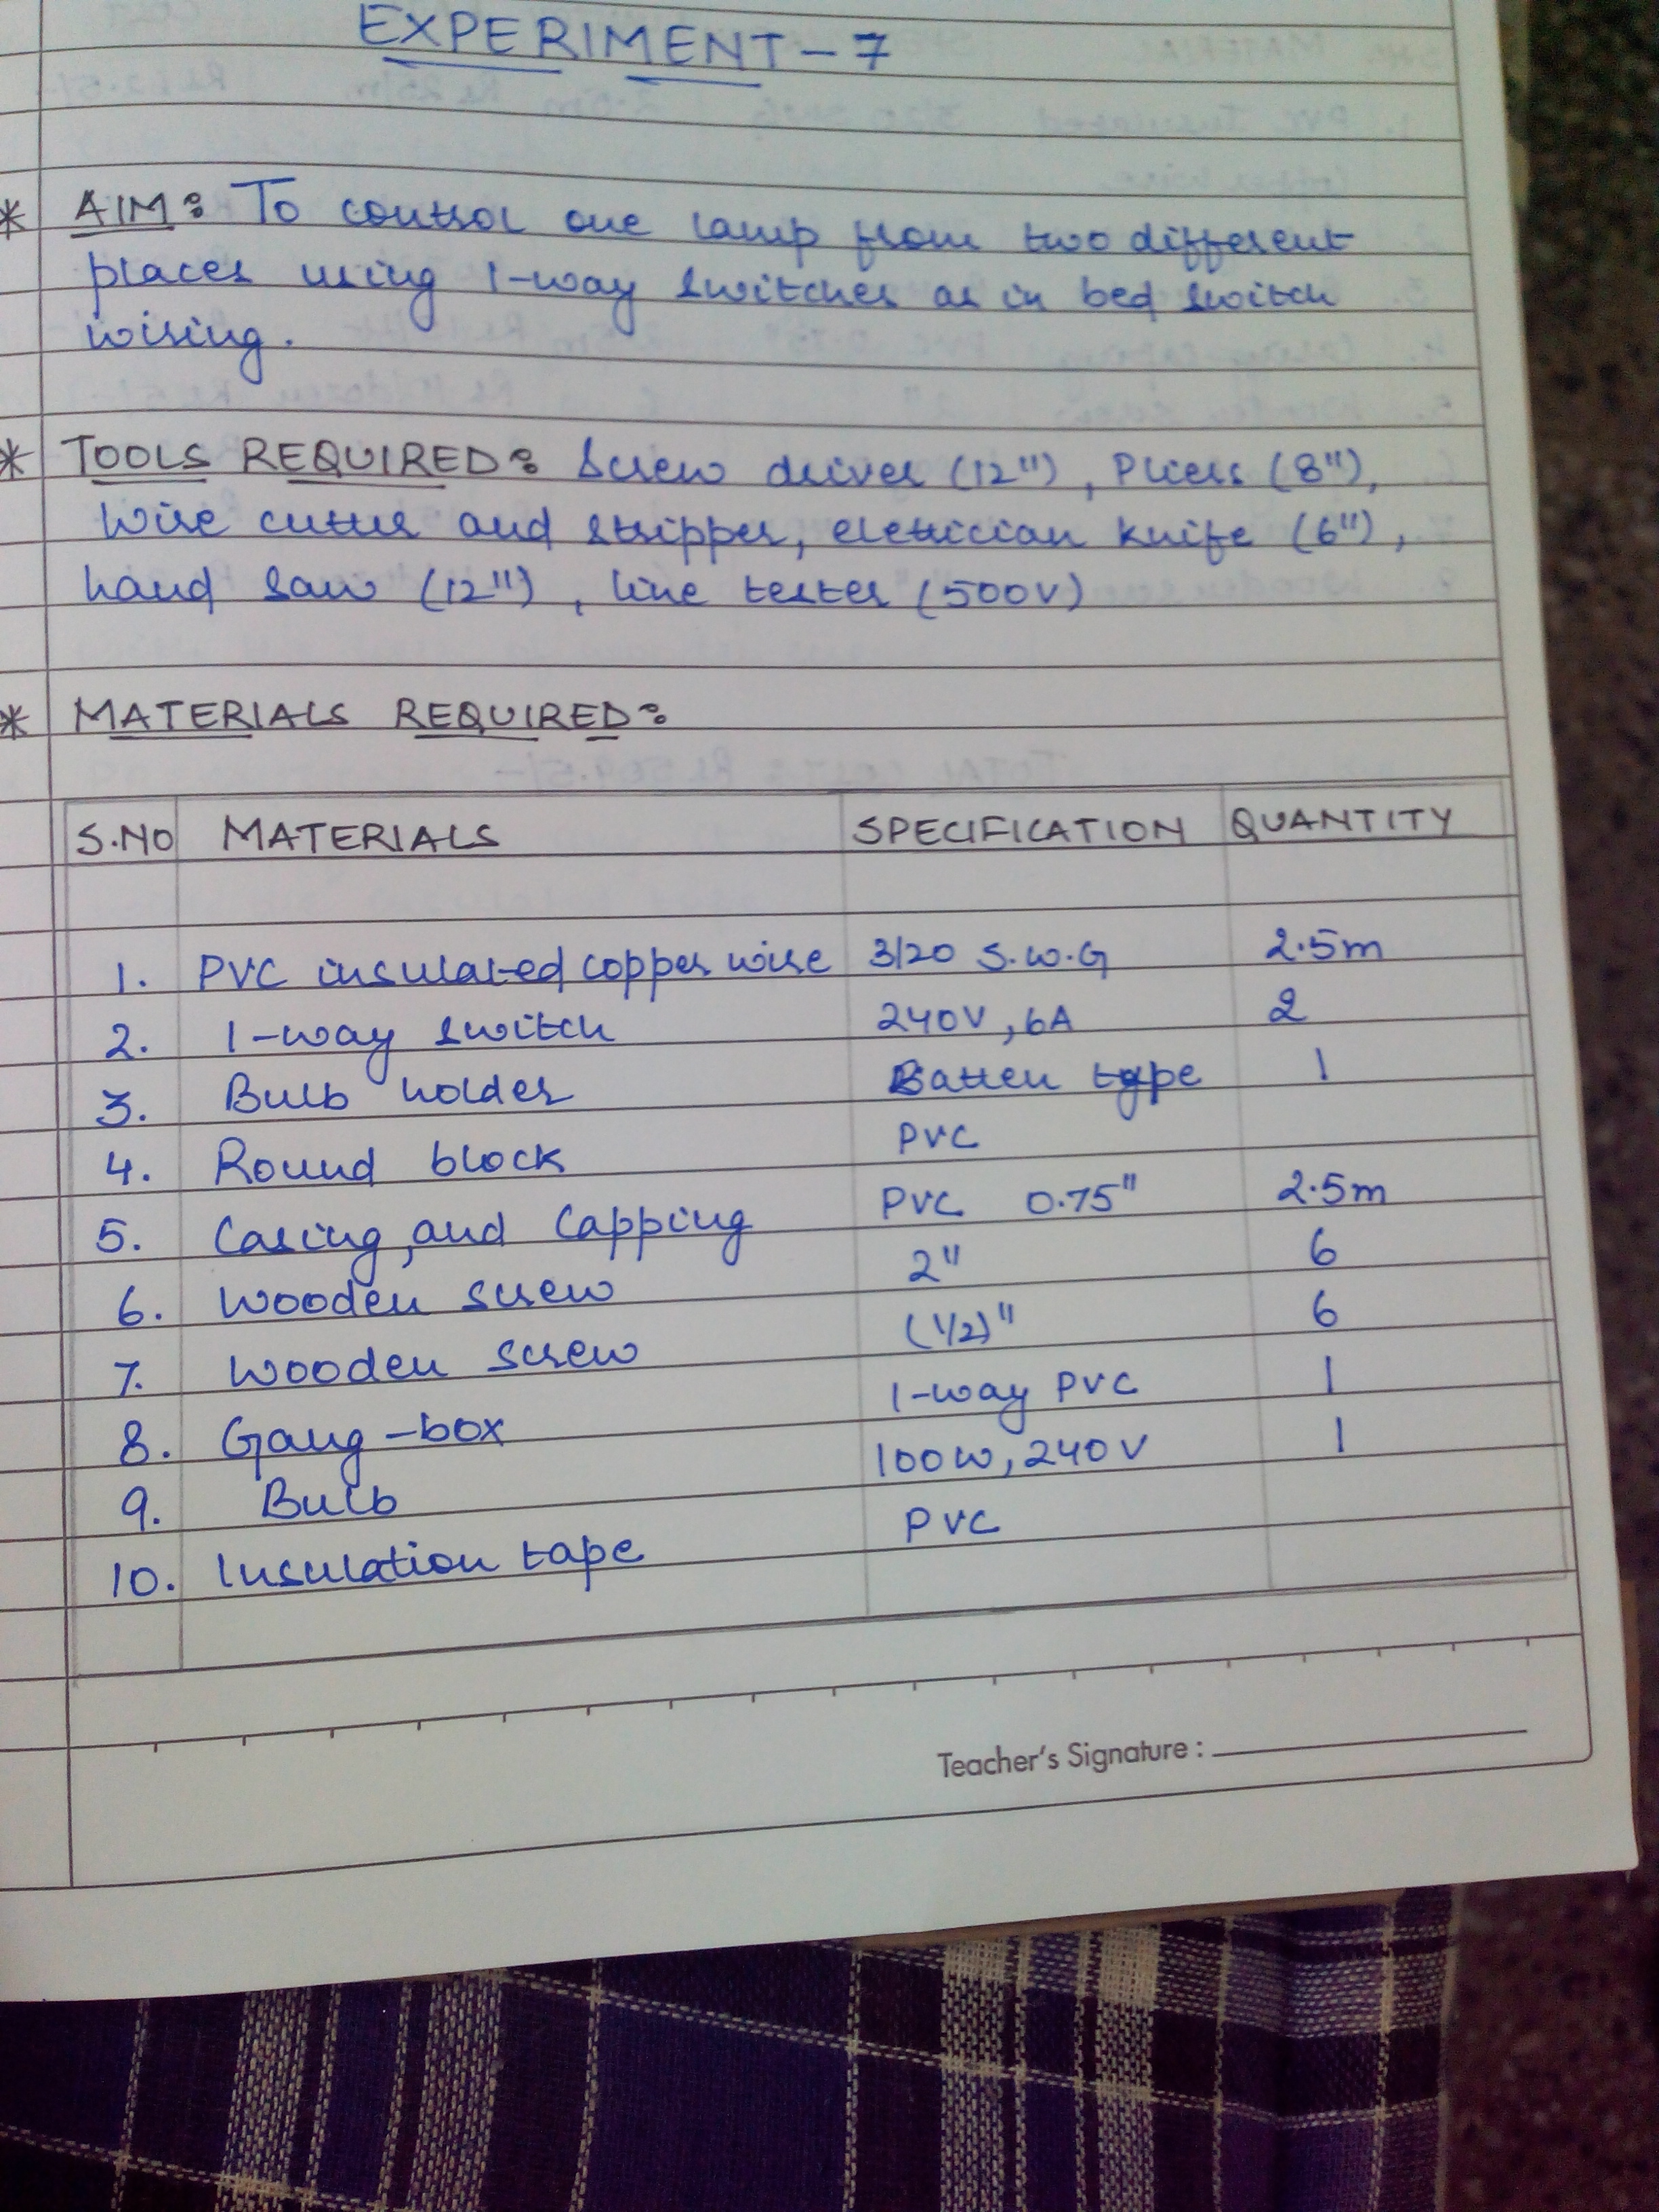 EXPERIMENT-7
* AIM: To control one lamp from two different
places using 1-way switches as in bed switch
wiring.
* TOOLS REQUIRED: Screw driver (12"), Pliers (8"),
Wire cutter and stripper, eletrician knife (6"),
hand saw (12"), line tester (500V)
* MATERIALS REQUIRED:
S.NO MATERIALS SPECIFICATION QUANTITY
1. PVC insulated copper wire 3/20 S.W.G 2.5m
2. 1-way switch 240V, 6A 2
3. Bulb holder Batten type 1
4. Round block PVC
5. Casing and Capping PVC 0.75" 2.5m
6. Wooden screw 2" 6
7. Wooden screw (1/2)" 6
8. Gang-box 1-way PVC 1
9. Bulb 100W, 240V 1
10. Insulation tape PVC
Teacher's Signature :